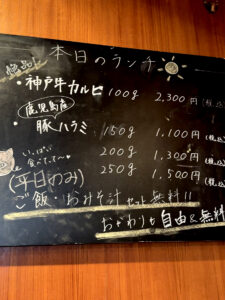 本日のランチ
絶品
・神戸牛カルビ 100g 2,300円(税込)
鹿児島産
・豚ハラミ 150g 1,100円(税込)
いっぱい食べてって〜 200g 1,300円(税込)
250g 1,500円(税込)
(平日のみ)
ご飯・おみそ汁セット無料!!
おかわりも自由&無料